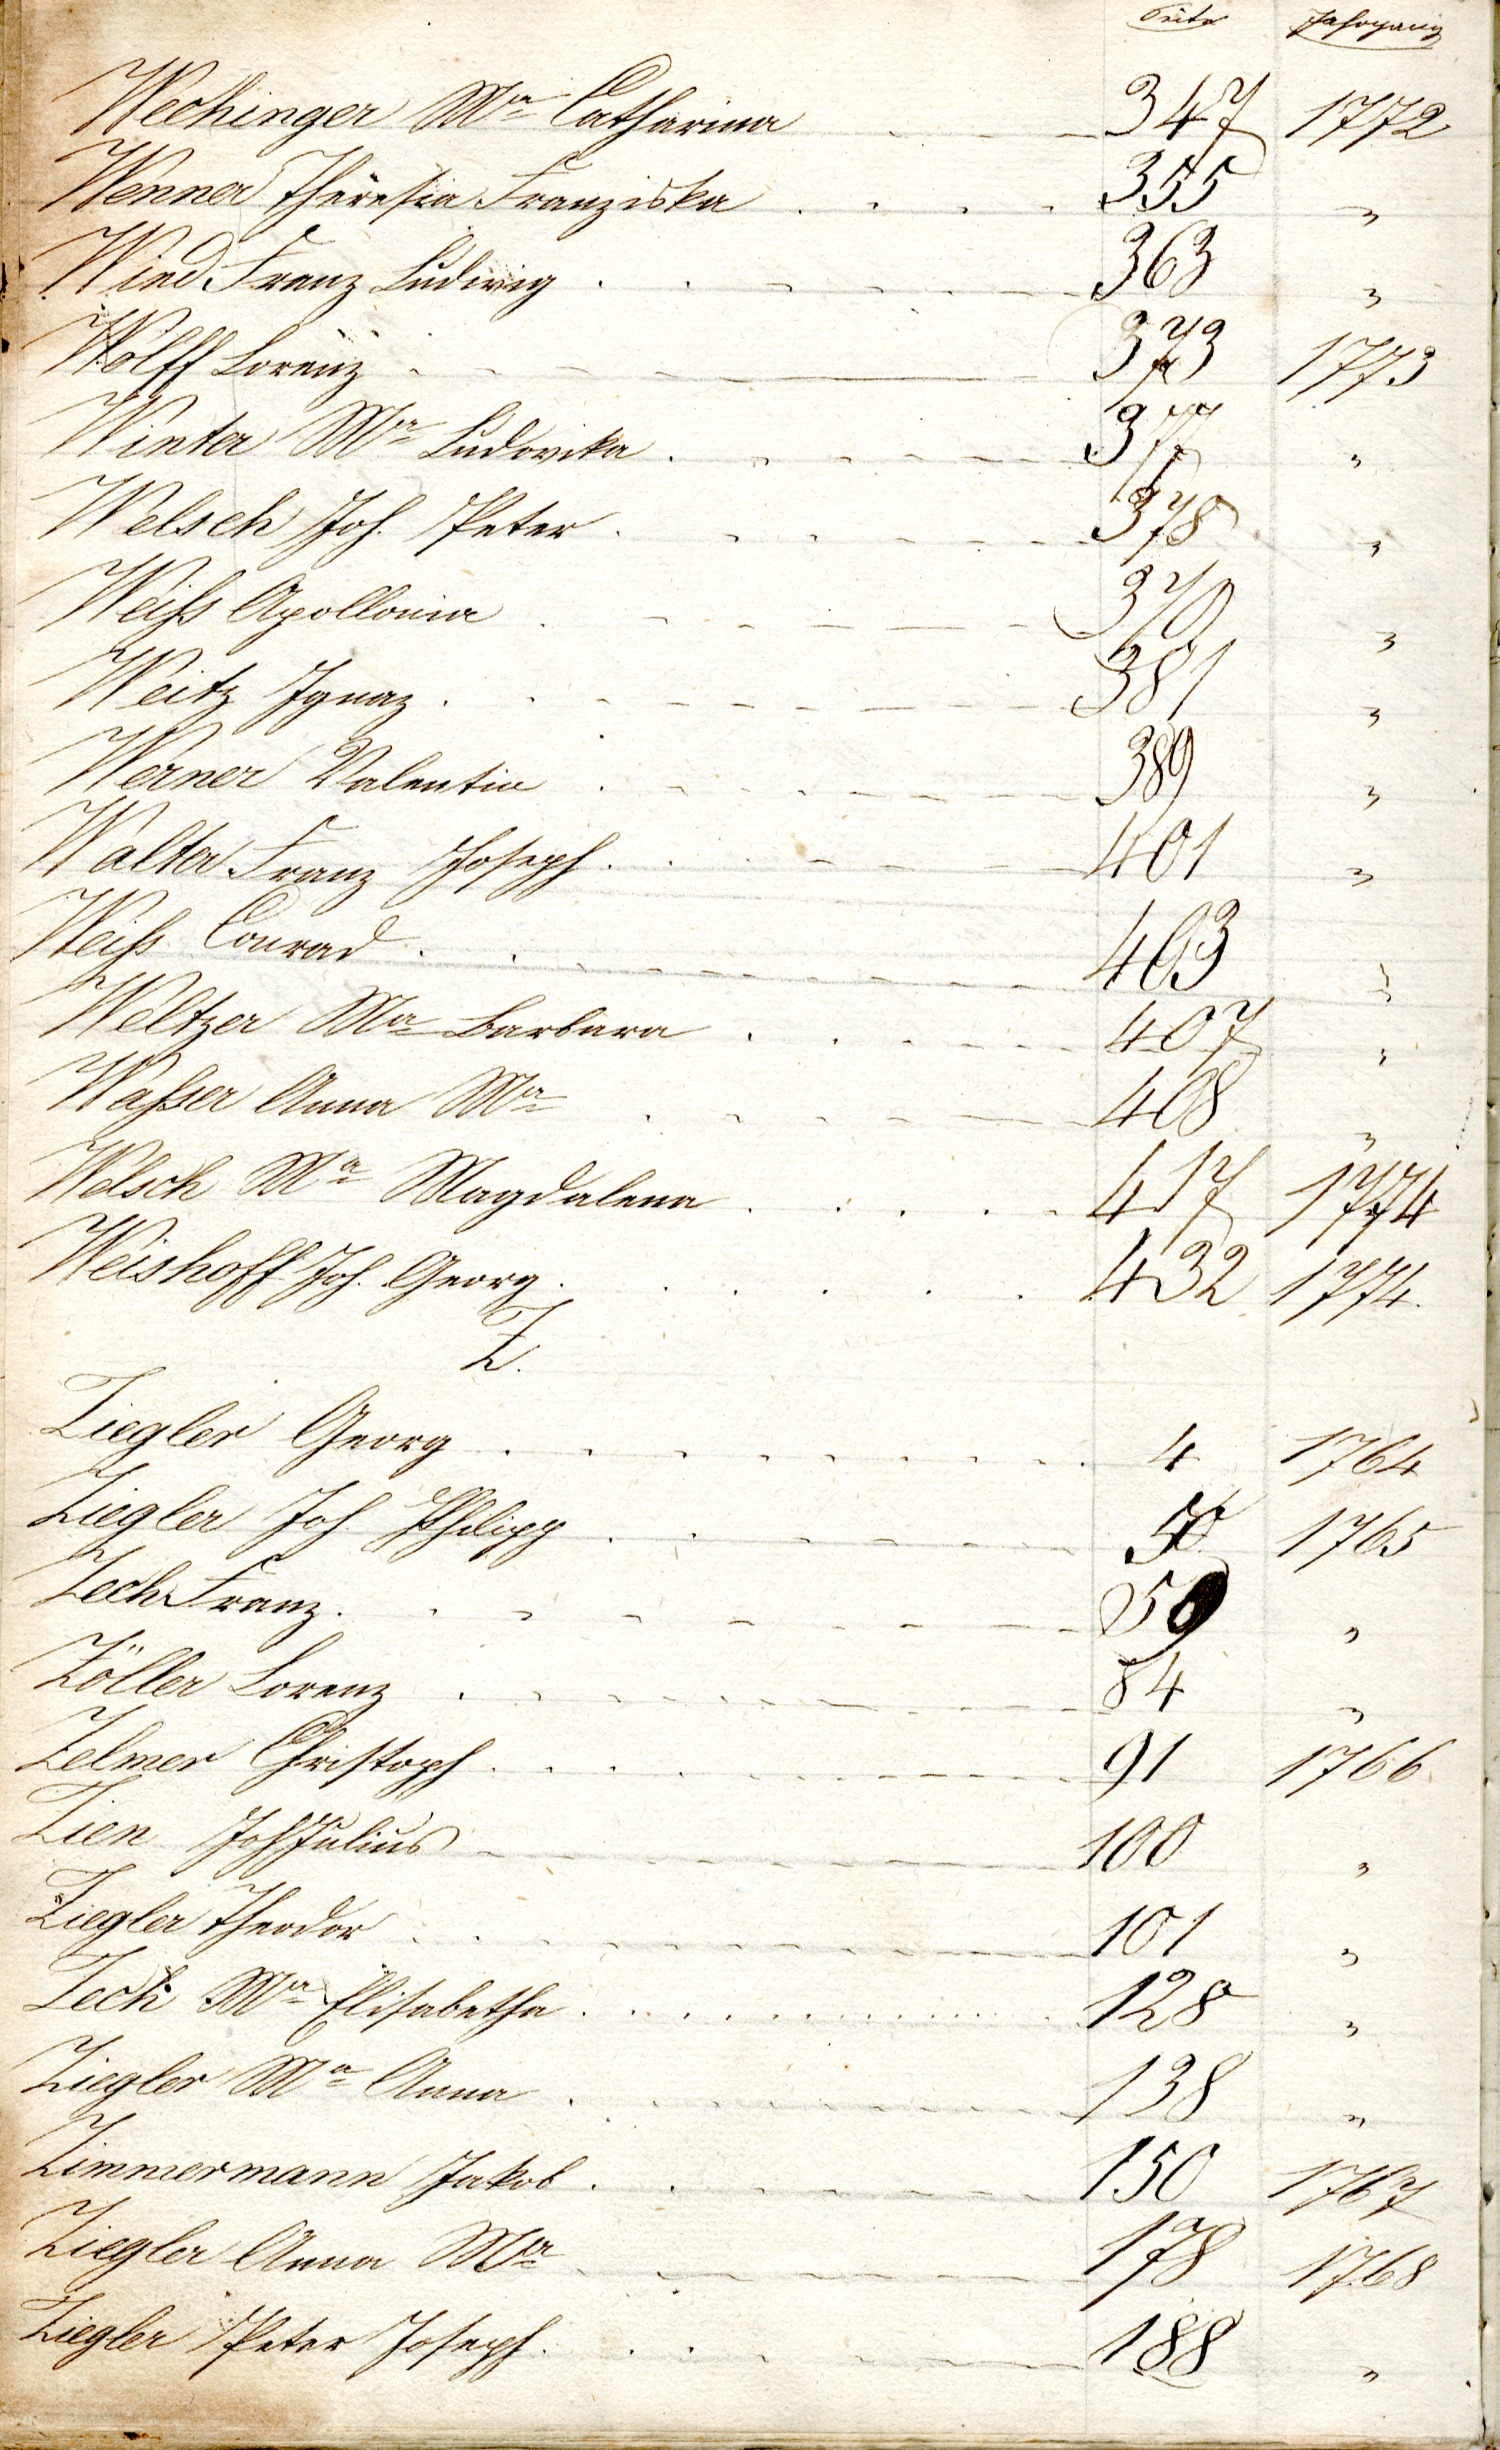 Seite Jahrgang
Wechinger Mª Catharina 347 1772
Wenner Theresia Franziska 355 "
Wind Franz Ludwig 363 "
Wolff Lorenz 373 1773
Winter Mª Ludovika 377 "
Welsch Joh. Peter 378 "
Weiß Apollonia 370 "
Weitz Ignaz 381 "
Werner Valentin 389 "
Walter Franz Joseph 401 "
Weiß Conrad 403 "
Weltzer Mª Barbara 407 "
Waßer Anna Mª 408 "
Welsch Mª Magdalena 417 1774
Weishoff Joh. Georg 432 1774.
Z.
Ziegler Georg 4 1764
Ziegler Joh. Philipp 50 1765
Zech Franz 59 "
Zöller Lorenz 84 "
Zelmer Christoph 91 1766
Zien Joh Julius 100 "
Ziegler Theodor 101 "
Zech Mª Elisabetha 128 "
Ziegler Mª Anna 138 "
Zimmermann Jakob 150 1767
Ziegler Anna Mª 178 1768
Ziegler Peter Joseph 188 "